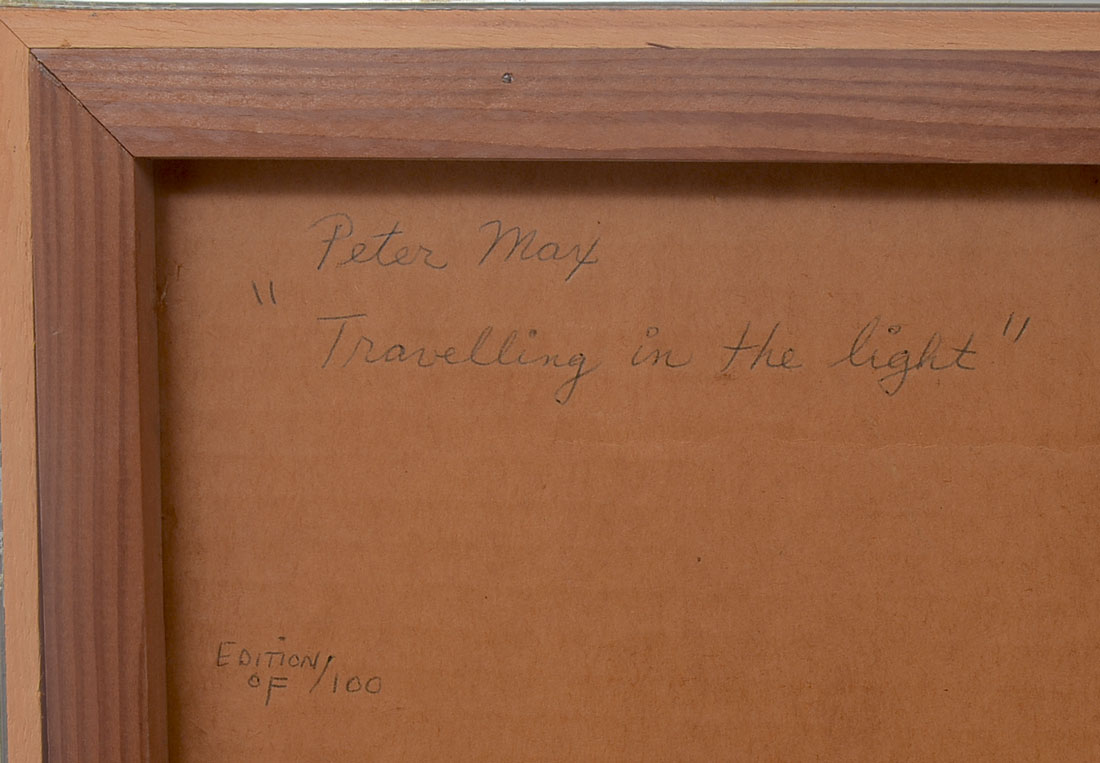 Peter Max
"Travelling in the light"
EDITION
OF /100